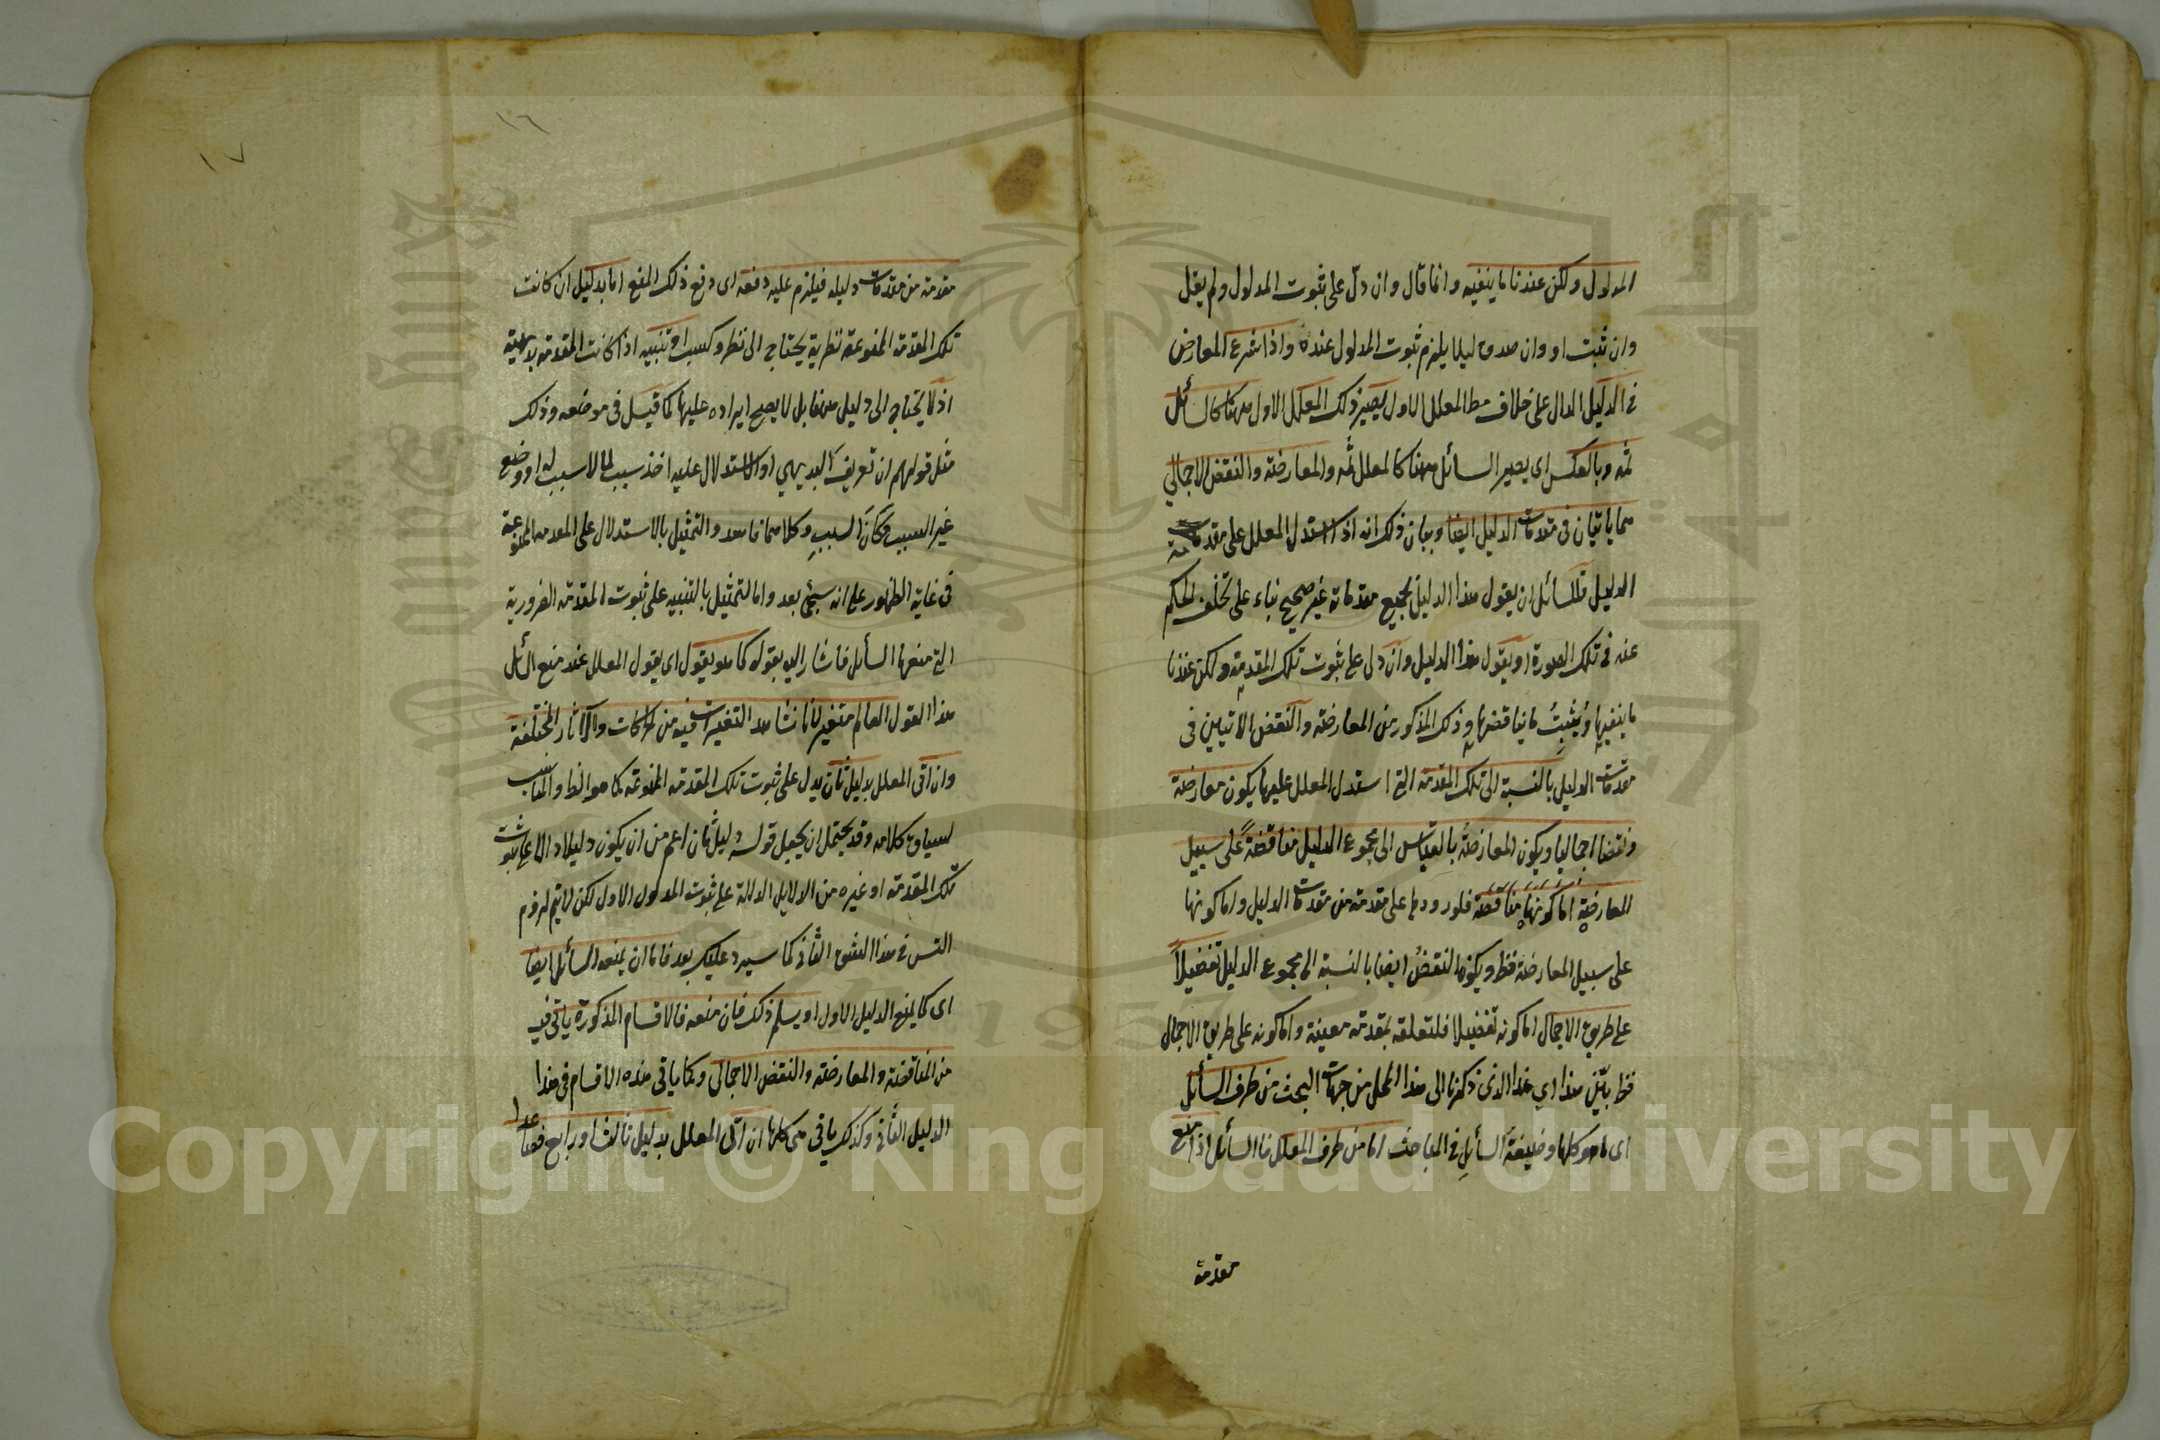 المدلول ولكن عندنا ما ينفيه وانما قال وان دل على ثبوت المدلول ولم يقل
وان ثبت او وان صدق دليلا يلزم ثبوت المدلول عنده واذا شرع المعارض
في الدليل الدال على خلاف مط المعلل الاول يصير ذلك المعلل الاول ههنا كالسائل
ثمه وبالعكس اى يصير السائل ههنا كالمعلل ثمه والمعارضة والنقض الاجمالي
هما ياتيان في مقدمات الدليل ايضا وبيان ذلك انه اذا استدل المعلل على مقدمة
الدليل فللسائل ان يقول هذا الدليل بجميع مقدماته غير صحيح بناء على تخلف الحكم
عنه في تلك الصورة او يقول هذا الدليل وان دل على ثبوت تلك المقدمة ولكن عندنا
ما ينفيها ويثبت ما يناقضها وذلك المذكور من المعارضة والنقض الاتيين في
مقدمات الدليل بالنسبة الى تلك المقدمة التي استدل المعلل عليها يكون معارضة
ونقضا اجماليا ويكون المعارضة بالقياس الى مجموع الدليل مناقضة على سبيل
المعارضة اما كونها مناقضة فلورودها على مقدمة من مقدمات الدليل واما كونها
على سبيل المعارضة فظ ويكون النقض ايضا بالنسبة الى مجموع الدليل تفضيلا
على طريق الاجمال اما كونه تفضيلا فلتعلقه بمقدمة معينة واما كونه على طريق الاجمال
فظ بين هذا اي هذا الذى ذكرنا الى هذا المحل من جهات البحث من طرف السائل
اى ما هو كلها وظيفة السائل في المباحث اما من طرف المعلل فالسائل اذا منع
مقدمة
١٦
١٧
مقدمة من مقدمات دليله فيلزم عليه دفعه اى دفع ذلك المنع اما بدليل ان كانت
تلك المقدمة الممنوعة نظرية يحتاج الى نظر وكسب او تنبيه اذا كانت المقدمة بديهية
اذ لا يحتاج الى دليل من قابل لا يصح ايراده عليها كما قيل في موضعه وذلك
مثل قولهم ان تعريف البديهي او الاستدلال عليه اخذ سبب لما لا سبب له او وضع
غير السبب مكان السبب وكلاهما فاسد والتمثيل بالاستدلال على المقدمة الممنوعة
في غاية الظهور على انه سيجئ بعد واما التمثيل بالتنبيه على ثبوت المقدمة الضرورية
التي منعها السائل فاشار اليه بقوله كما هو يقول اى يقول المعلل عند منع السائل
هذا القول العالم متغير لانا نشاهد التغيرات فيه من الحركات والآثار المختلفة
وان اتى المعلل بدليل ثان يدل على ثبوت تلك المقدمة الممنوعة كما هو الظ والمناسب
لسياق كلامه وقد يحتمل ان يجعل قوله دليل ثان اعم من ان يكون دليلا دالا على ثبوت
تلك المقدمة او غيره من الدلايل الدالة على ثبوت المدلول الاول لكن لا يتم لزوم
التس في هذا الشق الثاني كما سيرد عليك بعد فاما ان يمنعه السائل ايضا
اى كما يمنع الدليل الاول او يسلم ذلك فان منعه فالاقسام المذكورة ياتي فيه
من المناقضة والمعارضة والنقض الاجمالى وكما ياتى هذه الاقسام في هذا
الدليل الثاني وكذلك ياتى هى كلها ان اتى المعلل بدليل ثالث او رابع فصاعدا
Copyright © King Saud University